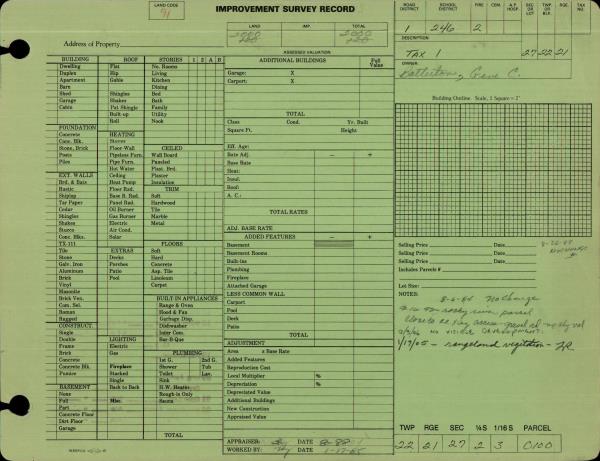 LAND CODE
91
IMPROVEMENT SURVEY RECORD
LAND IMP. TOTAL
Address of Property
ASSESSED VALUATION
ROAD DISTRICT SCHOOL DISTRICT FIRE C.
SEC OR LOT TWP OR BLK RGE TAX
1 246 2
DESCRIPTION
TAX 1 27 22 21
OWNER
BUILDING ROOF STORIES 1 2 A B
Dwelling Flat No. Rooms
Duplex Hip Living
Apartment Gable Kitchen
Barn Dining
Shed Shingles Bed
Garage Shakes Bath
Cabin Pat. Shingle Family
Built-up Utility
Roll Nook
FOUNDATION
Concrete HEATING
Conc. Blk. Stoves CEILED
Stone, Brick Floor-Wall Wall Board
Posts Pipeless Furn. Paneled
Piles Pipe Furn. Plast. Brd.
Hot Water Plaster
EXT. WALLS Ceiling Insulation
Brd. & Bats Heat Pump TRIM
Rustic Floor Rad. Soft
Shiplap Base B. Rad. Hardwood
Tar Paper Panel Rad. Tile
Cedar Oil Burner Marble
Shingles Gas Burner Metal
Shakes Electric
Stucco Air Cond.
Conc. Blks. Solar
TX-111 FLOORS
Tile EXTRAS Soft
Stone Decks Hard
Galv. Iron Porches Concrete
Aluminum Patio Asp. Tile
Brick Pool Linoleum
Vinyl Carpet
Masonite
Brick Ven. BUILT-IN APPLIANCES
Com. Sel. Range & Oven
Roman Hood & Fan
Ragged Garbage Disp.
CONSTRUCT. Dishwasher
Single Inter Com.
Double LIGHTING Bar-B-Que
Frame Electric
Brick Gas PLUMBING
Concrete 1st G. 2nd G.
Concrete Blk. Fireplace Shower Tub
Pumice Stacked Toilet Lav.
Single Sink
BASEMENT Back to Back H.W. Heater
None Rough-in Only
Full Misc.
Part
Concrete Floor
Dirt Floor
Garage TOTAL
ADDITIONAL BUILDINGS Full Value
Garage: X
Carport: X
TOTAL
Class Cond. Yr. Built
Square Ft. Height
Eff. Age:
Rate Adj. - +
Base Rate
Heat:
Insul:
Roof:
A. C.:
TOTAL RATES
ADJ. BASE RATE
ADDED FEATURES - +
Basement
Basement Rooms
Built-ins
Plumbing
Fireplace
Attached Garage
LESS COMMON WALL
Carport
Pool
Deck
Patio
TOTAL
ADJUSTMENT
Area x Base Rate
Added Features
Reproduction Cost
Local Multiplier %
Depreciation %
Depreciated Value
Additional Buildings
New Construction
Appraised Value
APPRAISER: DATE
WORKED BY: DATE
Building Outline. Scale, 1 Square = 2'
Selling Price Date
Selling Price Date
Selling Price Date
Includes Parcels #
Lot Size:
NOTES:
8-6-84 No Change
1/17/05 - rangeland vegitation - JR
TWP RGE SEC ¼S 1/16 S PARCEL
22 21 27 2 3 0100